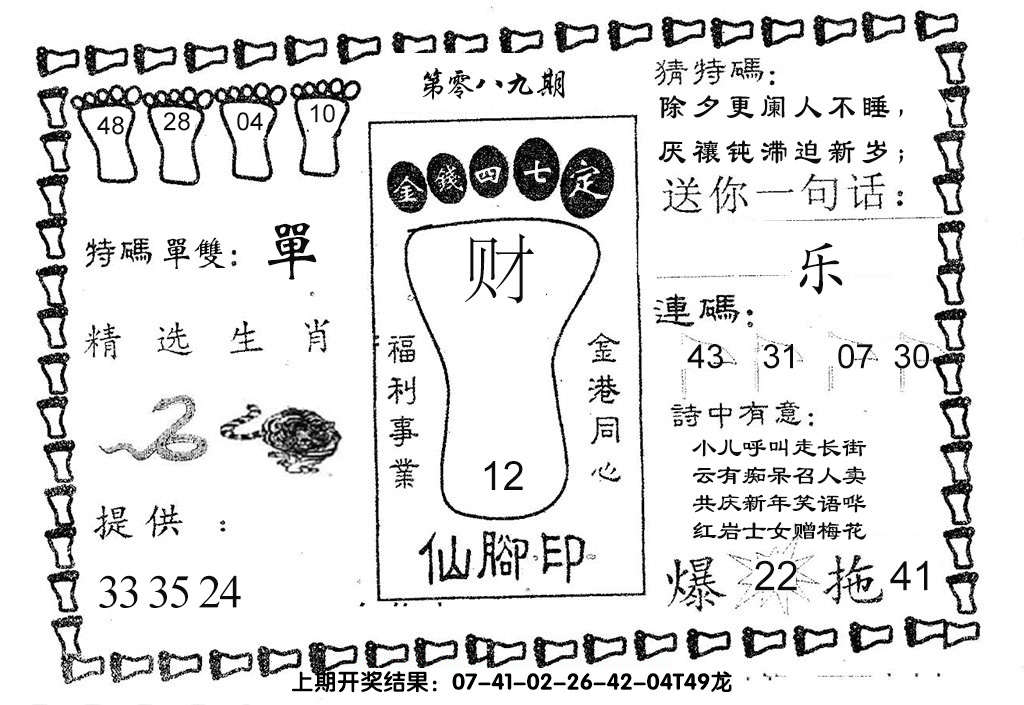 第零八九期
48 28 04 10
特碼單雙：單
精选生肖
提供：
33 35 24
金錢四七定
财
福利事業
金港同心
12
仙腳印
猜特碼：
除夕更阑人不睡，
厌禳钝滞迫新岁；
送你一句话：
乐
連碼：
43 31 07 30
詩中有意：
小儿呼叫走长街
云有痴呆召人卖
共庆新年笑语哗
红岩士女赠梅花
爆 22 拖 41
上期开奖结果：07-41-02-26-42-04T49龙